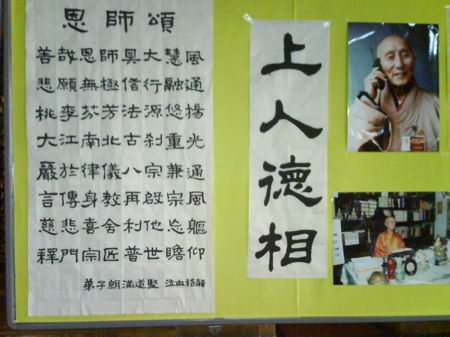 恩師頌
善哉恩師具大慧風
悲願無極信行融通
桃李芬芳法源悠揚
大江南北古刹重光
嚴於律儀八宗兼通
言傳身教再啟宗風
慈悲喜舍利他忘軀
釋門宗匠普世瞻仰
弟子 滿道堅 泣血稽
上人德相